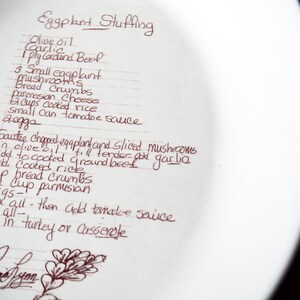 Eggplant Stuffing
Olive oil
Garlic
1 pkg Ground Beef
3 Small eggplant
mushrooms
Bread crumbs
parmesan cheese
2 cups cooked rice
small can tomatoe sauce
2 eggs
Sautee chopped eggplant and sliced mushrooms
in olive oil till tender add garlic
add to cooked ground beef
cooked rice
bread crumbs
cup parmesan
eggs -
all - then add tomatoe sauce
all -
in turkey or casserole
Lynn